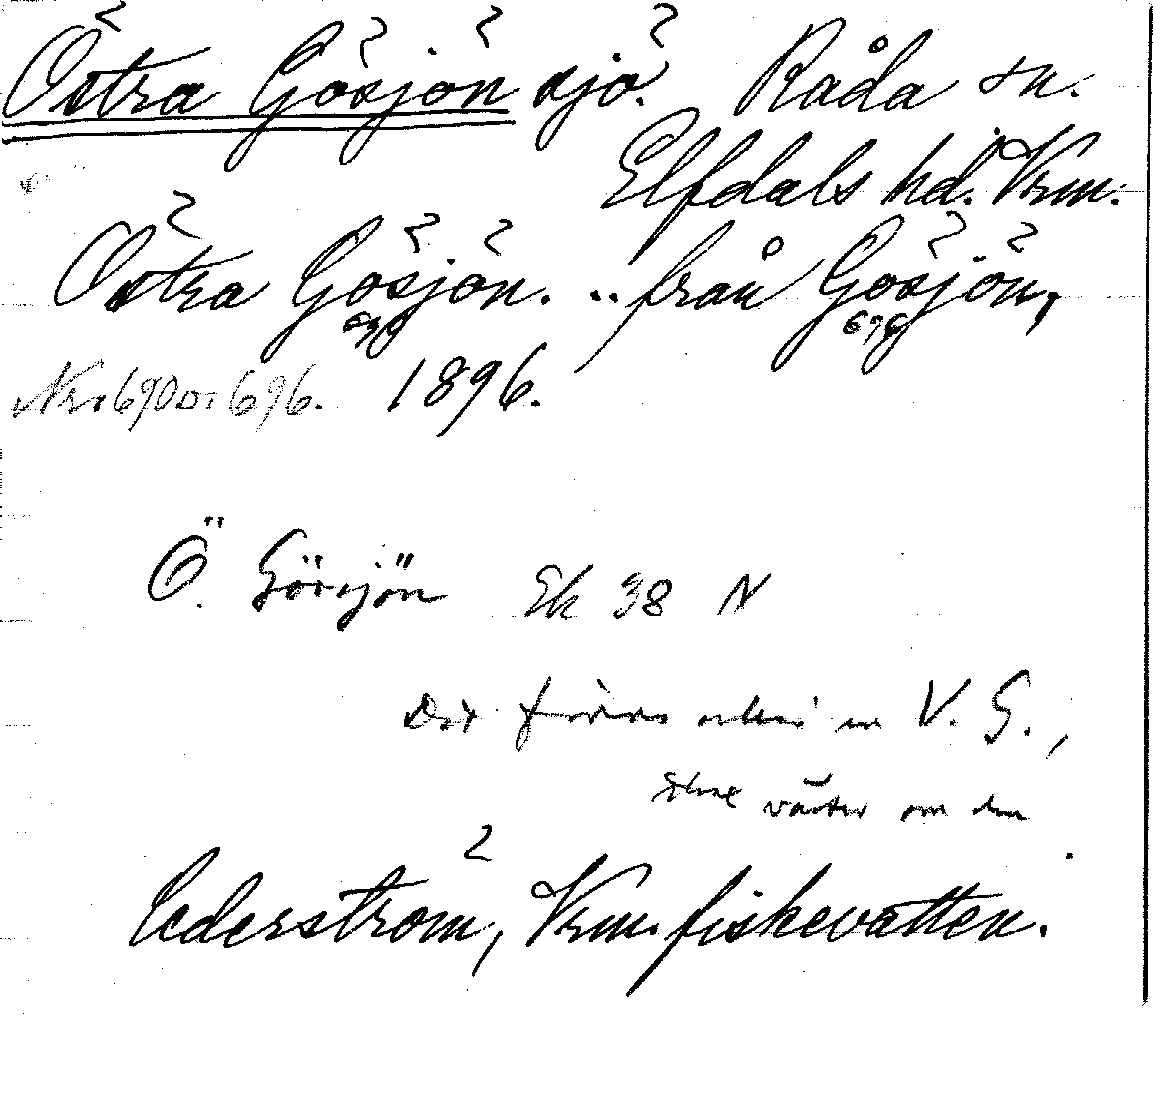 Östra Gösjön sjö. Råda sn.
Elfdals hd. Vrm.
Östra Gösjön. .. från Gösjön,
690 696
Nr. 690 o. 696. 1896.
Ö. Görsjön Ek 38 N
Det finns också en V. G.,
väster om den
Cederström, Vrm. fiskevatten.